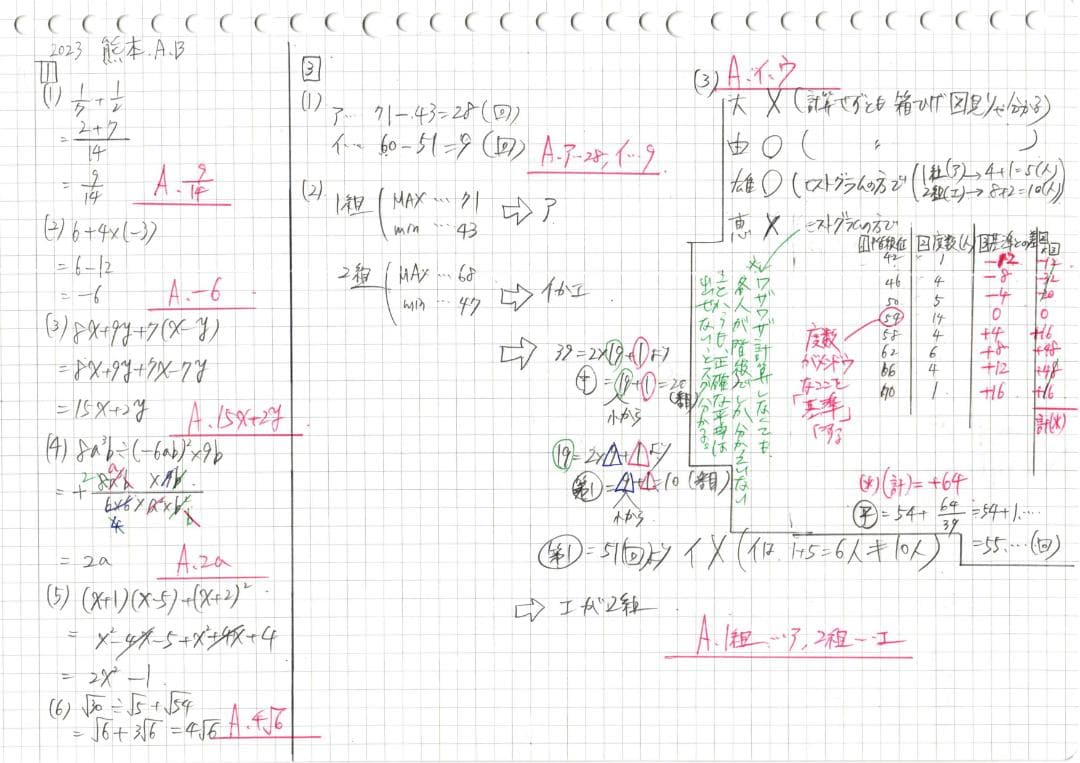 2023 熊本.A.B
1
(1) 1/7 + 1/2
= 2+7/14
= 9/14
A. 9/14
(2) 6+4×(-3)
= 6-12
= -6
A. -6
(3) 8x+9y+7(x-y)
= 8x+9y+7x-7y
= 15x+2y
A. 15x+2y
(4) 8a³b÷(-6ab)²×9b
= 2a
A. 2a
(5) (x+1)(x-5)+(x+2)²
= x²-4x-5+x²+4x+4
= 2x²-1
(6) √30÷√5+√54
= √6+3√6=4√6
A. 4√6
3
(1) ア… 71-43=28(回)
イ… 60-51=9(回)
A. ア…28, イ…9
(2) 1組 MAX … 71
min … 43
⇨ ア
2組 MAX … 68
min … 47
⇨ イかエ
⇨ 39=2×19+1より
中=19+1=20(番目)
小から
19=2×9+1より
第1=9+1=10(番目)
小から
第1=51(回)より イ×(イは 1+5=6人≠10人)
⇨ エが2組
A. 1組…ア, 2組…エ
(3) A. イ、ウ
大 × (計算せずとも 箱ひげ図見りゃ分かる)
由 ○ ( 〃 )
雄 ○ (ヒストグラムの方で (1組(ア)→4+1=5(人)
2組(エ)→8+2=10(人)
恵 × ヒストグラムの方で
※ワザワザ計算しなくても
各人が階級でしか分からない
ことからも、正確な平均は
出せないとスグ分かる。
階級値 度数(人) 基準との差
42 1 -12 -12
46 4 -8 -32
50 5 -4 -20
54 14 0 0
58 4 +4 +16
62 6 +8 +48
66 4 +12 +48
70 1 +16 +16
計(※)
度数
がメンドウ
なここを
「基準」
にする
(※)(計)=+64
平=54+64/39=54+1.…
=55.…(回)